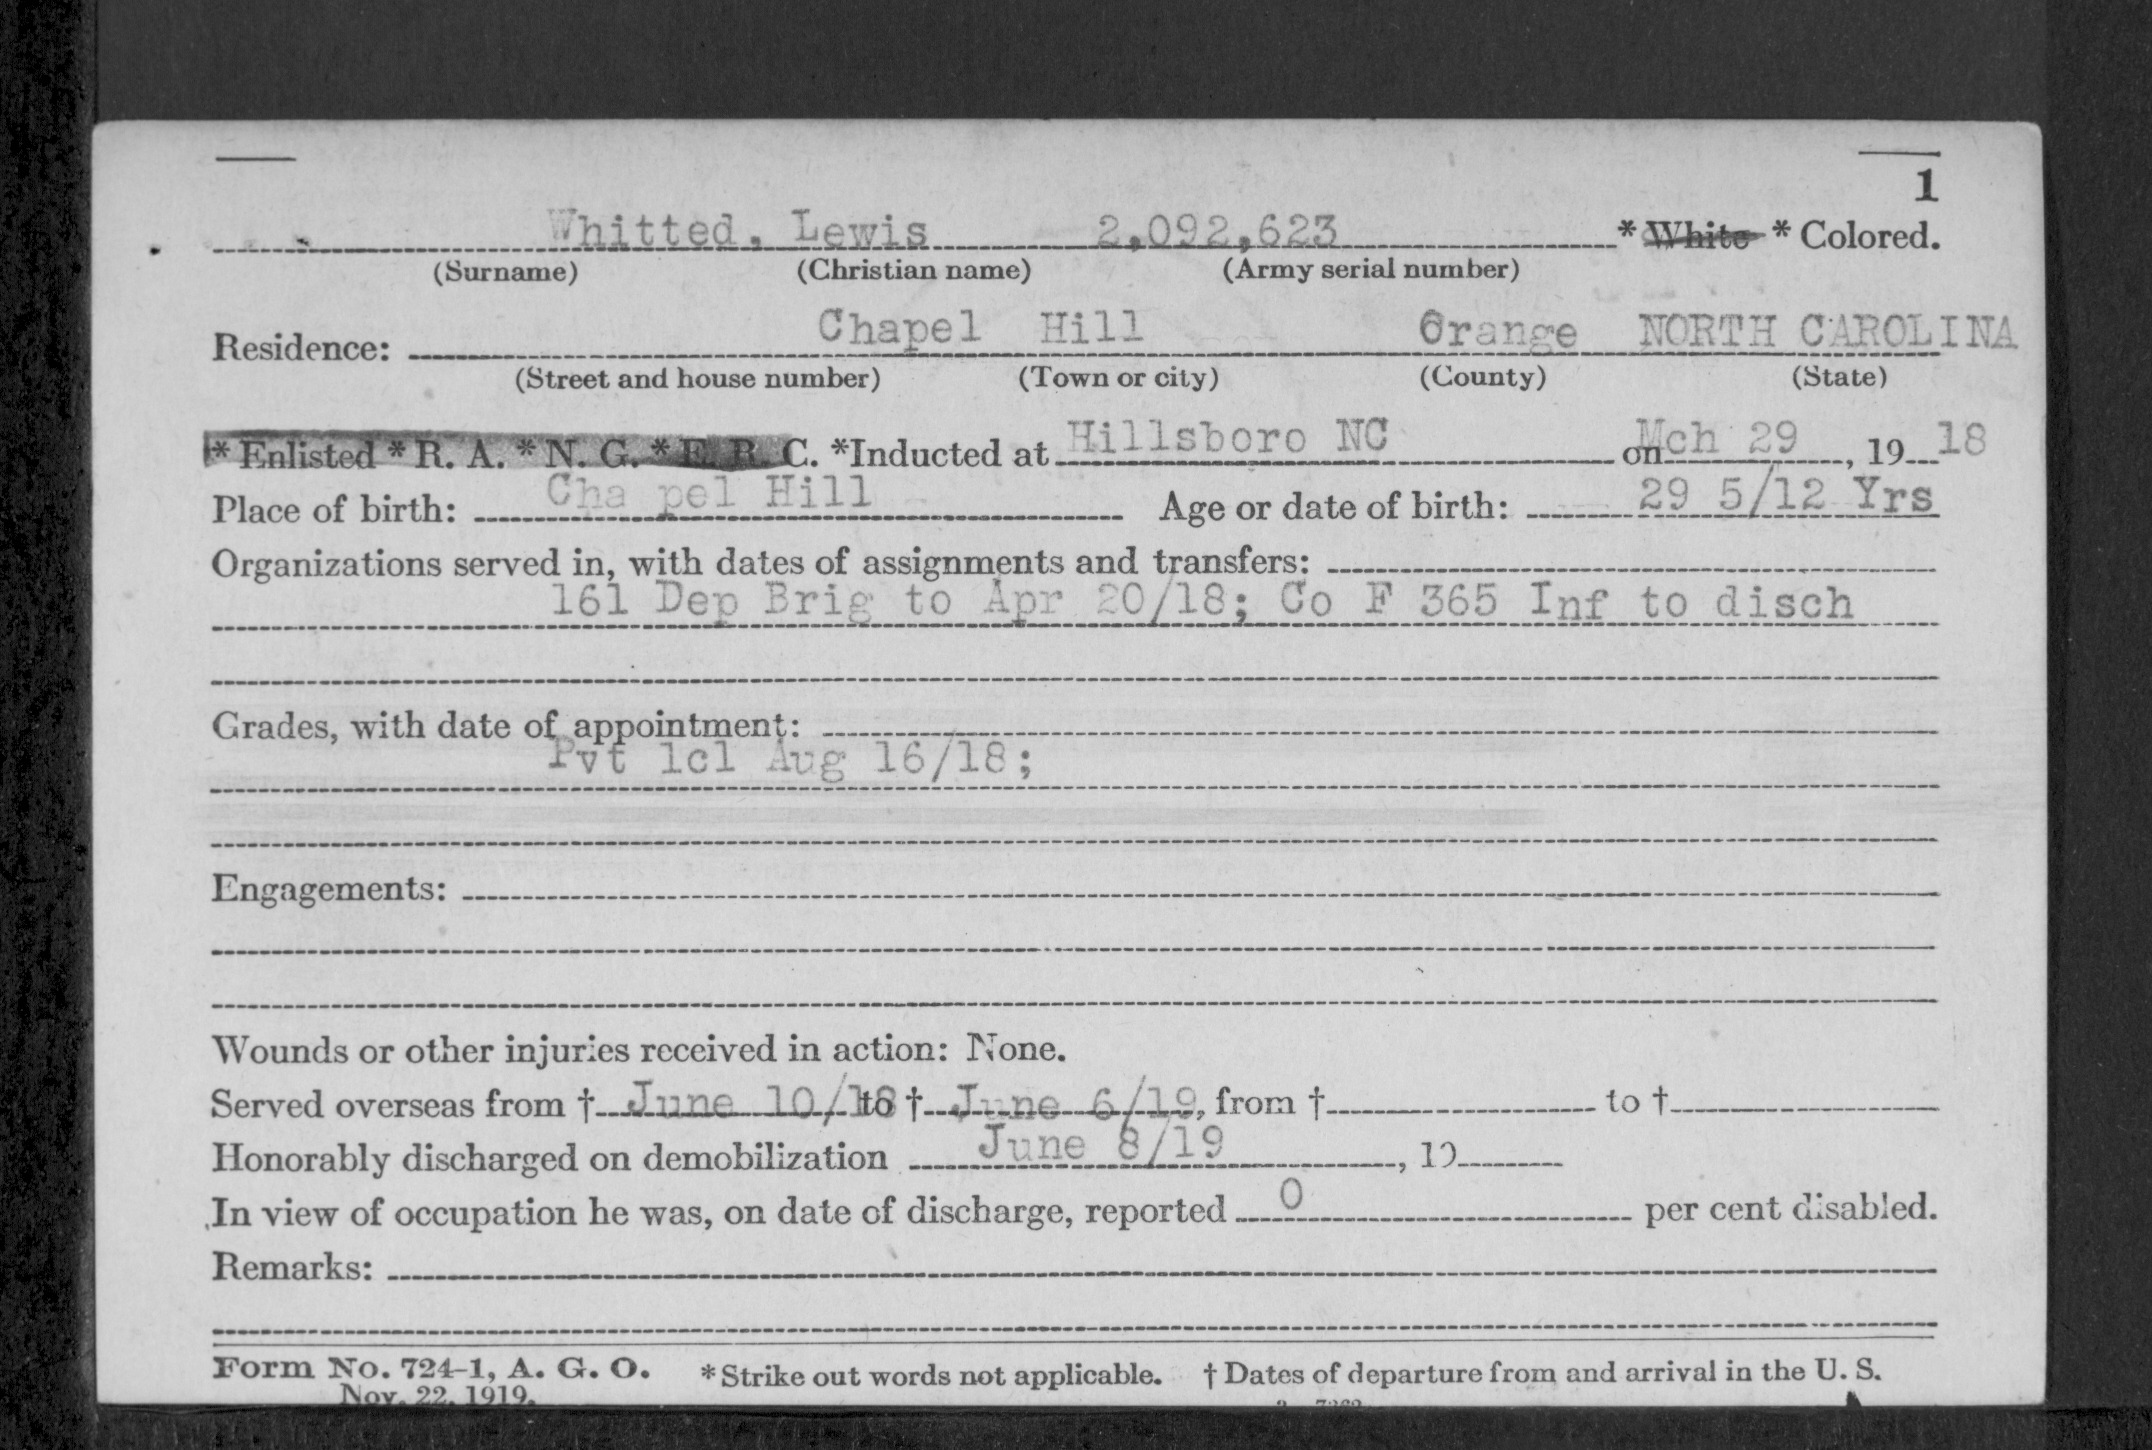 1
Whitted, Lewis 2,092,623 * White * Colored.
(Surname) (Christian name) (Army serial number)
Residence: Chapel Hill Orange NORTH CAROLINA
(Street and house number) (Town or city) (County) (State)
* Enlisted * R. A. * N. G. * E. R. C. *Inducted at Hillsboro NC on Mch 29, 19 18
Place of birth: Cha pel Hill Age or date of birth: 29 5/12 Yrs
Organizations served in, with dates of assignments and transfers:
161 Dep Brig to Apr 20/18; Co F 365 Inf to disch
Grades, with date of appointment:
Pvt 1cl Aug 16/18;
Engagements:
Wounds or other injuries received in action: None.
Served overseas from † June 10/18 to † June 6/19, from † to †
Honorably discharged on demobilization June 8/19, 19
In view of occupation he was, on date of discharge, reported 0 per cent disabled.
Remarks:
Form No. 724-1, A. G. O. * Strike out words not applicable. † Dates of departure from and arrival in the U. S.
Nov. 22, 1919.